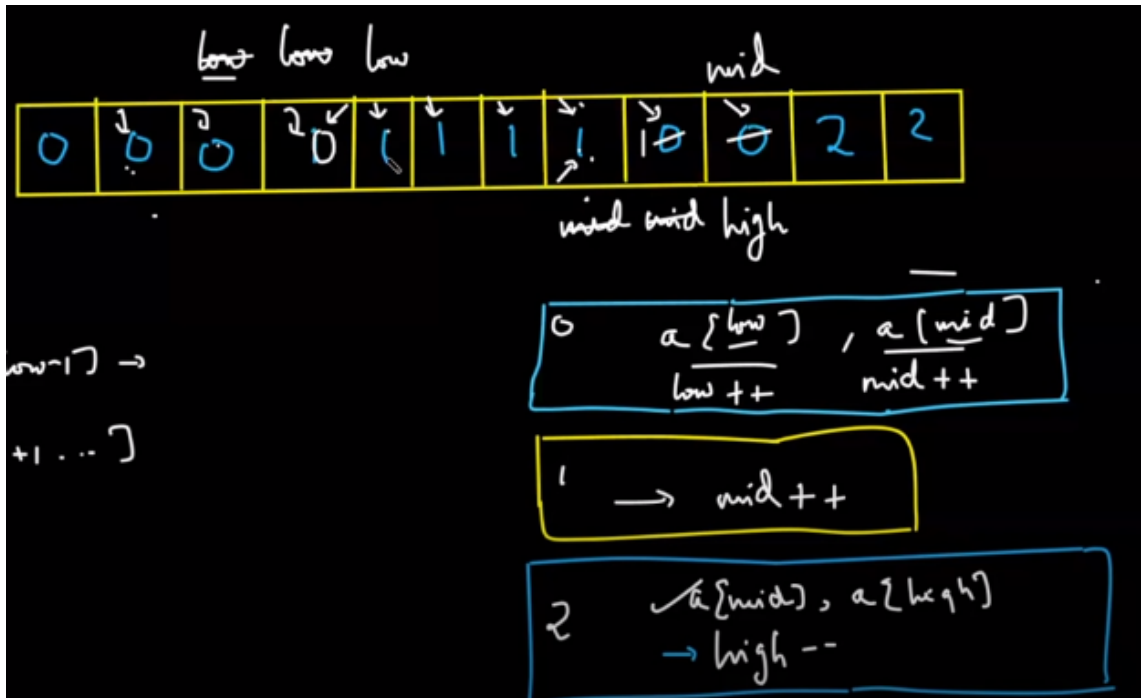 low low low mid
0 0 0 0 1 1 1 1 1 0 0 2 2
mid mid high
0 a[low], a[mid]
low++ mid++
low-1] →
+1 ... ]
1 → mid++
2 a[mid], a[high]
→ high--